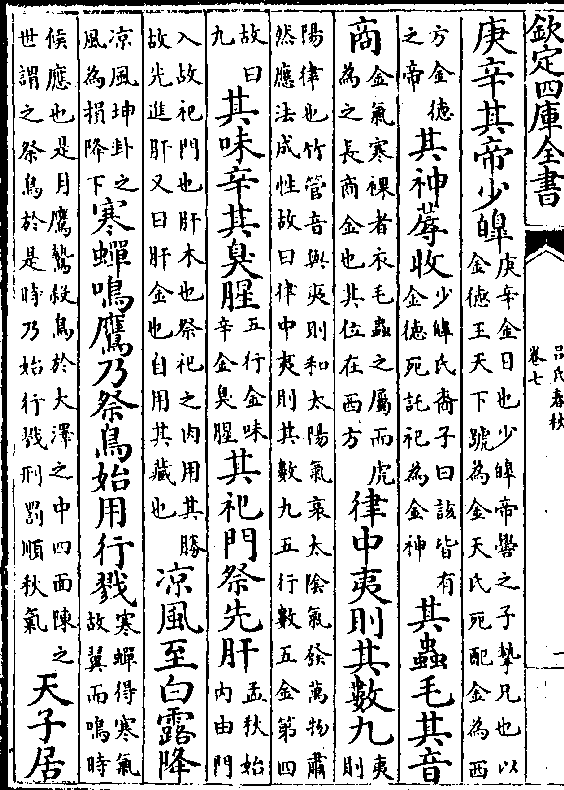 欽定四庫全書
呂氏春秋
卷七
一
庚辛其帝少皞庚辛金日也少皞帝嚳之子摯兄也以金德王天下號為金天氏死配金為西
方金德之帝其神蓐收少皞氏裔子曰該皆有金德死託祀為金神其蟲毛其音
商金氣寒裸者衣毛蟲之屬而虎為之長商金也其位在西方律中夷則其數九夷則
陽律也竹管音與夷則和太陽氣衰太陰氣發萬物肅然應法成性故曰律中夷則其數九五行數五金第四
故曰九其味辛其臭腥五行金味辛金臭腥其祀門祭先肝孟秋始内由門
入故祀門也肝木也祭祀之肉用其勝故先進肝又曰肝金也自用其藏也凉風至白露降
凉風坤卦之風為損降下寒蟬鳴鷹乃祭鳥始用行戮寒蟬得寒氣故翼而鳴時
候應也是月鷹鷙殺鳥於大澤之中四面陳之世謂之祭鳥於是時乃始行戮刑罰順秋氣天子居